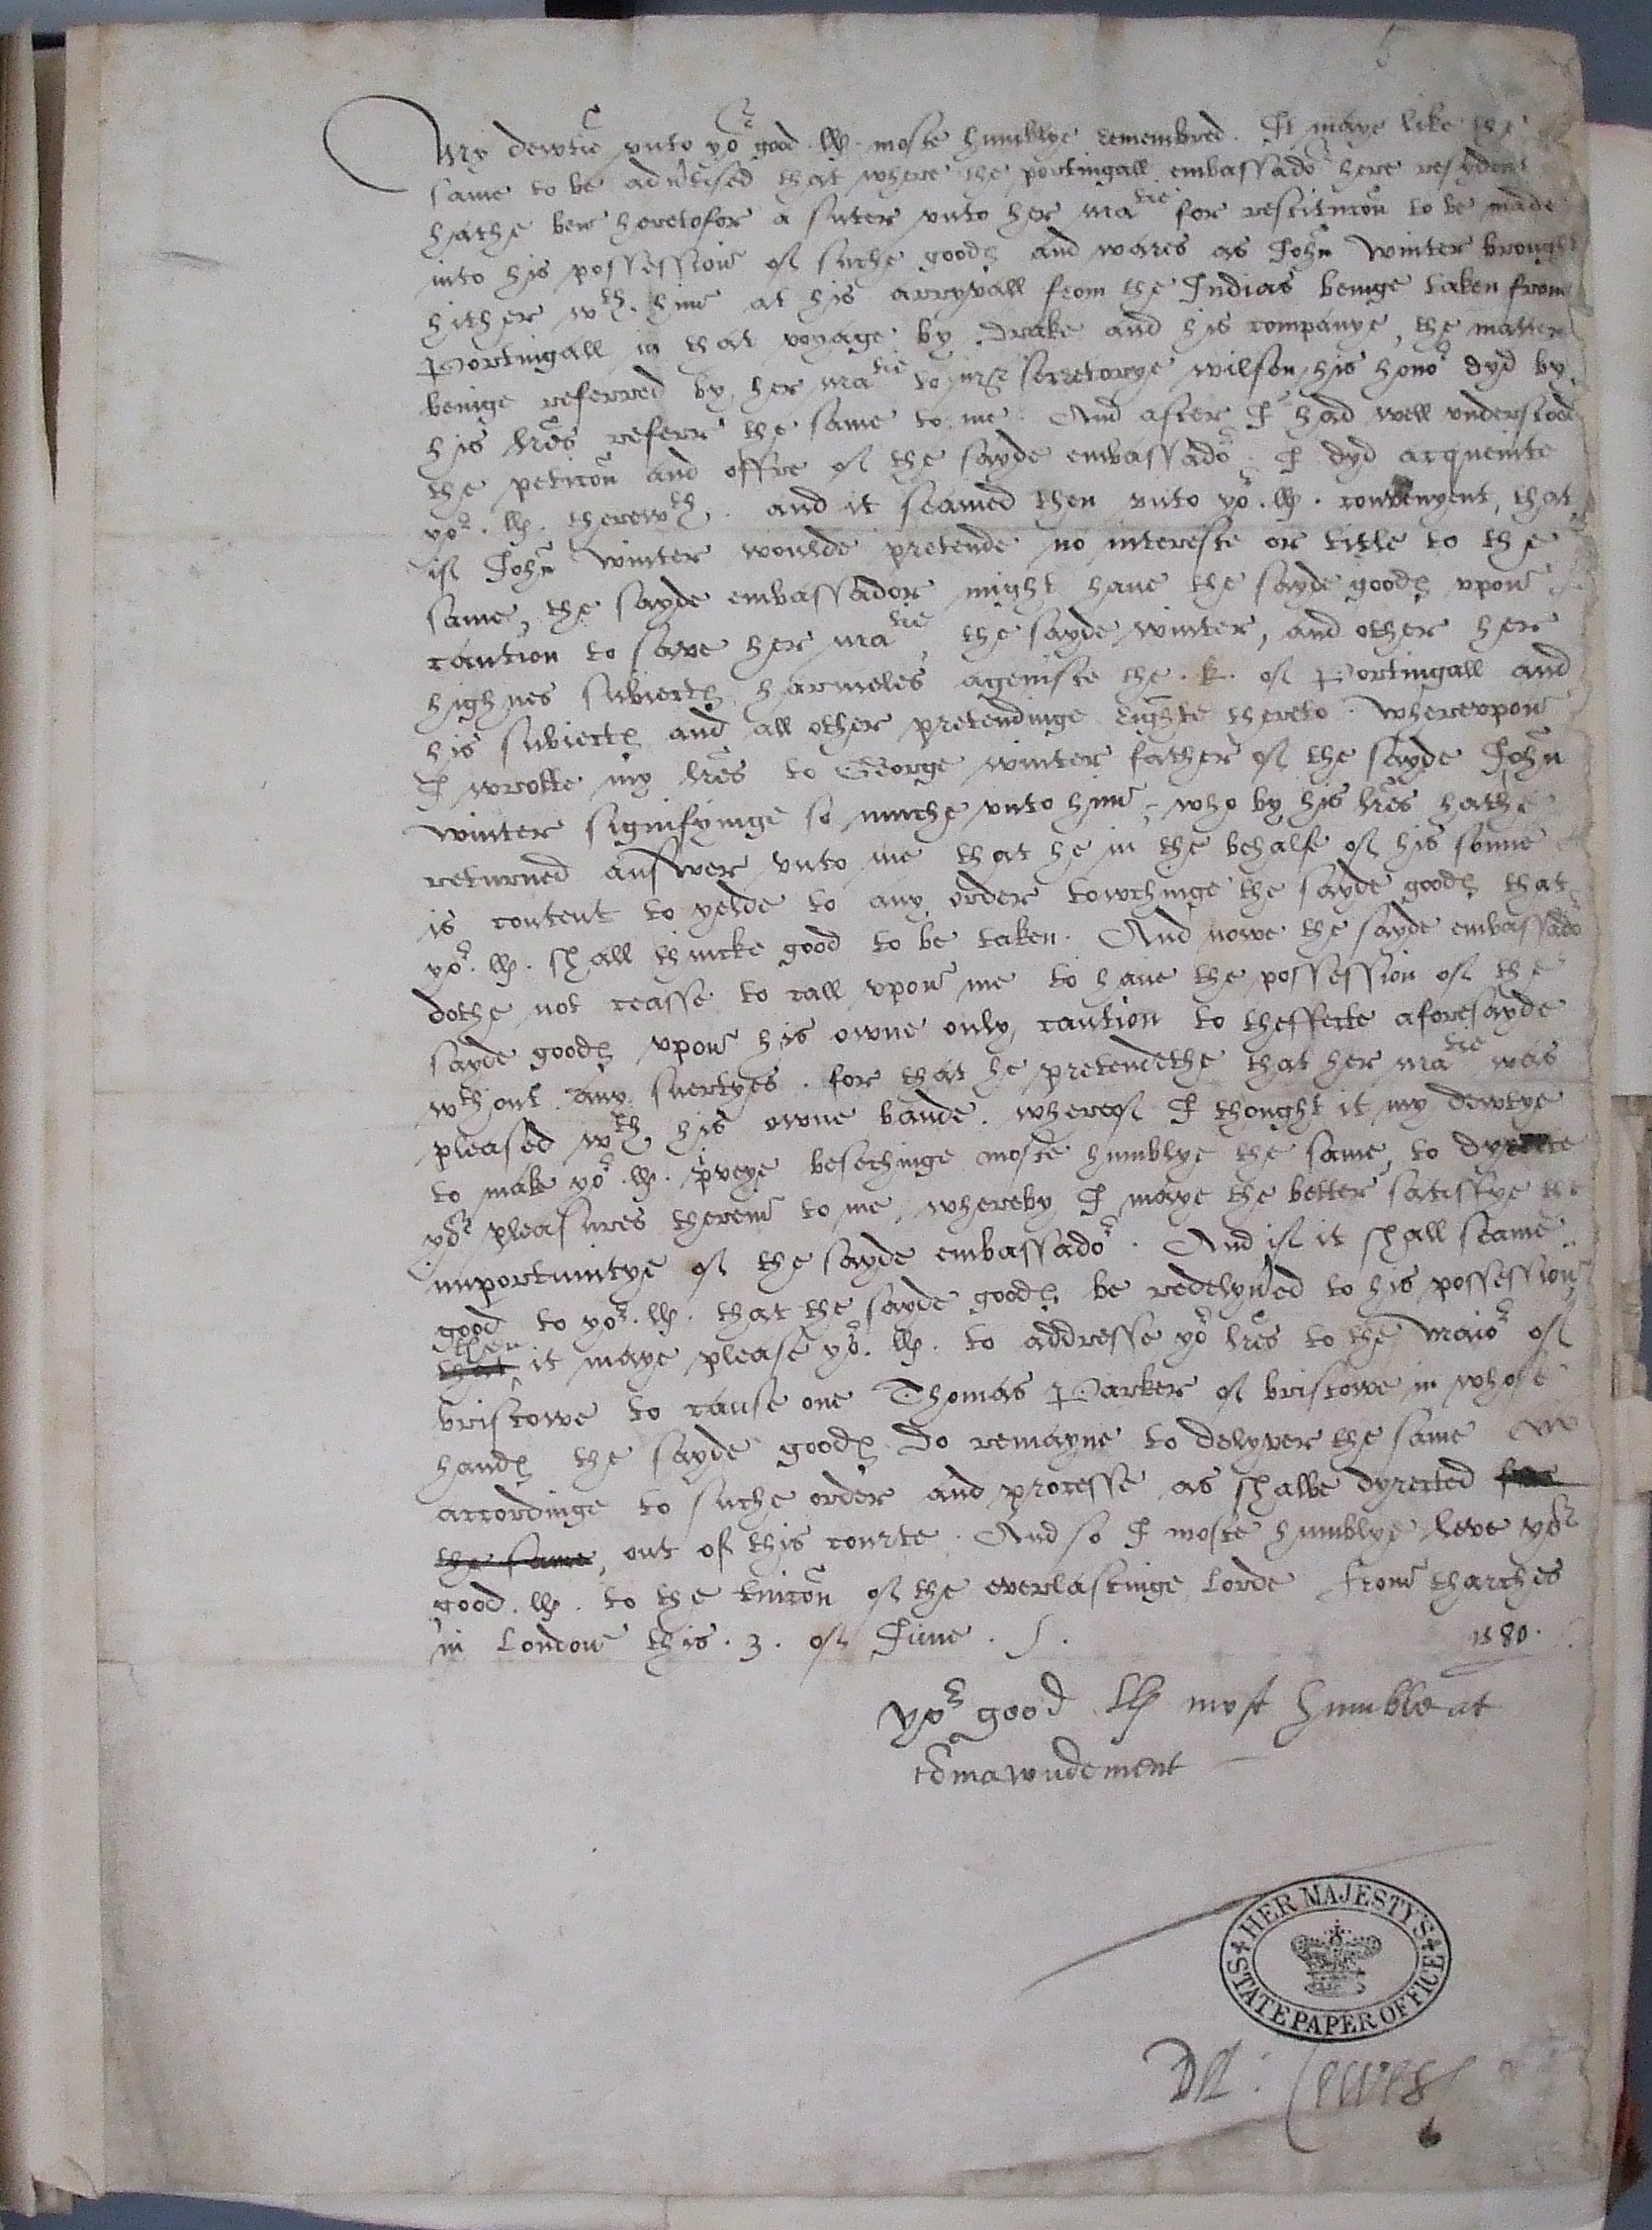 My dewtie vnto yor good .lp. moste humblye remembred. It maye like the
same to be aduertised that where the portingall embassador here resydent
hathe ben heretofor a suter vnto her matie for restitucon to be made
into his possession of suche goodes and wares as John Winter brought
hither wth him at his arryvall from the Indias beinge taken from
Portingall in that voyage by Drake and his companye, the matter
beinge referred by her matie to mr secretorye wilson, his honor dyd by
his lres referr the same to me. And after I had well understood
the peticon and offre of the sayde embassador, I dyd acqueinte
yor .lp. therewth. and it seamed then vnto yor .lp. convenyent, that
if John Winter woulde pretende no intereste or title to the
same, the sayde embassador might haue the sayde goodes vpon
caution to save her matie, the sayde winter, and other her
highnes subiectes harmeles ageinste the .k. of Portingall and
his subiectes and all other pretendinge righte thereto. Wherevpon
I wrotte my lres to George winter father of the sayde John
winter signifyinge so muche vnto him, who by his lres hathe
returned answer vnto me that he in the behalfe of his sonne
is content to yelde to any order towchinge the sayde goodes that
yor .lp. shall thincke good to be taken. And nowe the sayde embassador
dothe not ceasse to call vpon me to haue the possession of the
sayde goodes vpon his owne only caution to theffecte aforesayde
wthout any suertyes. for that he pretendethe that her matie was
pleased wth his owne bande. whereof I thought it my dewtye
to make yor .lp. pryeye besechinge moste humblye the same, to dyrecte
yor pleasures therein to me, whereby I maye the better satisfye the
importunitye of the sayde embassador. And if it shall seame
good to yor .lp. that the sayde goodes be redelyuered to his possession
then
that it maye please yor .lp. to addresse yor lres to the maior of
bristowe to cause one Thomas Parker of bristowe in whose
handes the sayde goodes do remayne to delyver the same
accordinge to suche order and processe as shalbe dyrected
the same, out of this courte. And so I moste humblye leve yor
good .lp. to the tuicon of the everlastinge Lorde from tharches
in London this .3. of June. 1580.
yor good lp most humble at
comawndement
HER MAJESTY'S STATE PAPER OFFICE
Da: Lewes